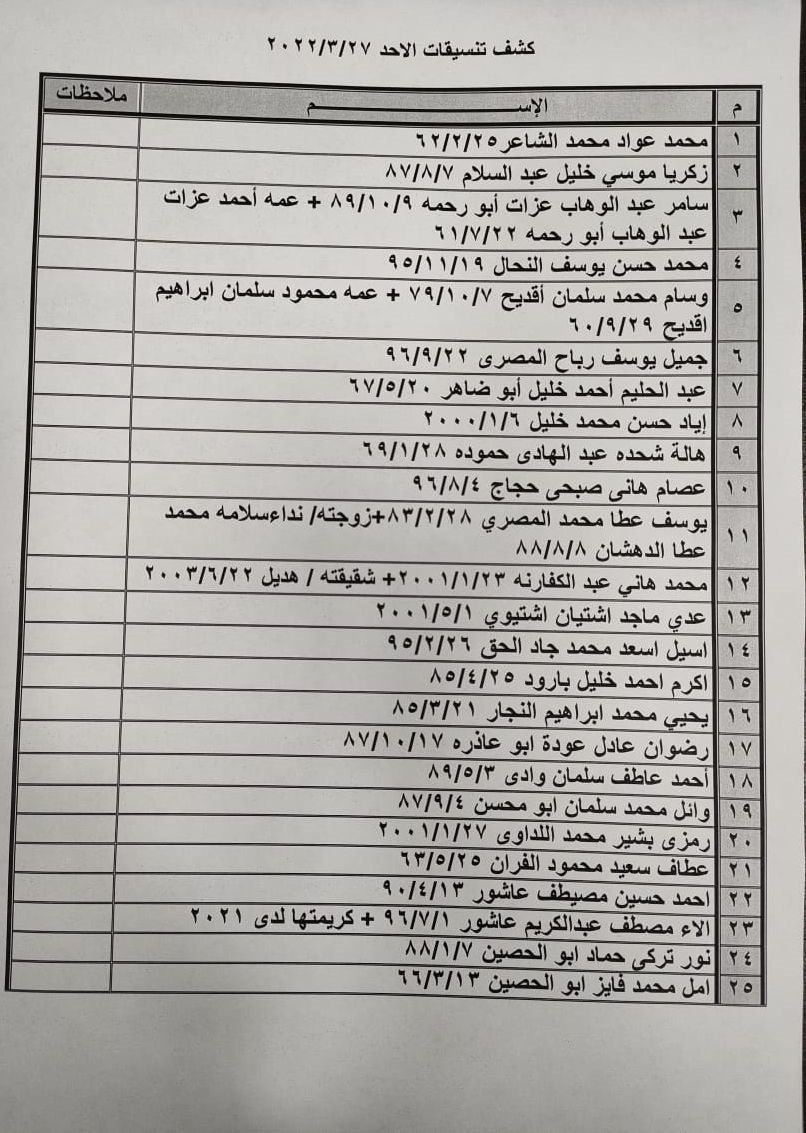 كشف تنسيقات الاحد ٢٠٢٢/٣/٢٧
م الإســـم ملاحظات
١ محمد عواد محمد الشاعر ٦٢/٢/٢٥
٢ زكريا موسي خليل عبد السلام ٨٧/٨/٧
٣ سامر عبد الوهاب عزات أبو رحمه ٨٩/١٠/٩ + عمه أحمد عزات
عبد الوهاب أبو رحمه ٦١/٧/٢٢
٤ محمد حسن يوسف النحال ٩٥/١١/١٩
٥ وسام محمد سلمان أقديح ٧٩/١٠/٧ + عمه محمود سلمان ابراهيم
اقديح ٦٠/٩/٢٩
٦ جميل يوسف رباح المصرى ٩٦/٩/٢٢
٧ عبد الحليم أحمد خليل أبو ضاهر ٦٧/٥/٢٠
٨ إياد حسن محمد خليل ٢٠٠٠/١/٦
٩ هالة شحده عبد الهادى حموده ٦٩/١/٢٨
١٠ عصام هانى صبحى حجاج ٩٦/٨/٤
١١ يوسف عطا محمد المصري ٨٣/٢/٢٨+زوجته/ نداءسلامه محمد
عطا الدهشان ٨٨/٨/٨
١٢ محمد هاني عبد الكفارنه ٢٠٠١/١/٢٣+ شقيقته / هديل ٢٠٠٣/٦/٢٢
١٣ عدي ماجد اشتيان اشتيوي ٢٠٠١/٥/١
١٤ اسيل اسعد محمد جاد الحق ٩٥/٢/٢٦
١٥ اكرم احمد خليل بارود ٨٥/٤/٢٥
١٦ يحيي محمد ابراهيم النجار ٨٥/٣/٢١
١٧ رضوان عادل عودة ابو عاذره ٨٧/١٠/١٧
١٨ أحمد عاطف سلمان وادى ٨٩/٥/٣
١٩ وائل محمد سلمان ابو محسن ٨٧/٩/٤
٢٠ رمزى بشير محمد اللداوى ٢٠٠١/١/٢٧
٢١ عطاف سعيد محمود الفران ٦٣/٥/٢٥
٢٢ احمد حسين مصيطف عاشور ٩٠/٤/١٣
٢٣ الاء مصطف عبدالكريم عاشور ٩٦/٧/١ + كريمتها لدى ٢٠٢١
٢٤ نور تركي حماد ابو الحصين ٨٨/١/٧
٢٥ امل محمد فايز ابو الحصين ٦٦/٣/١٣